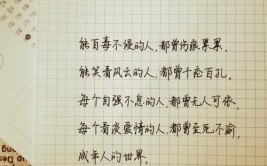 能百毒不侵的人，都曾伤痕累累．
能笑看风云的人，都曾千疮百孔．
每个自强不息的人，都曾无人可依．
每个看淡爱情的人，都曾至死不渝．
成年人的世界．